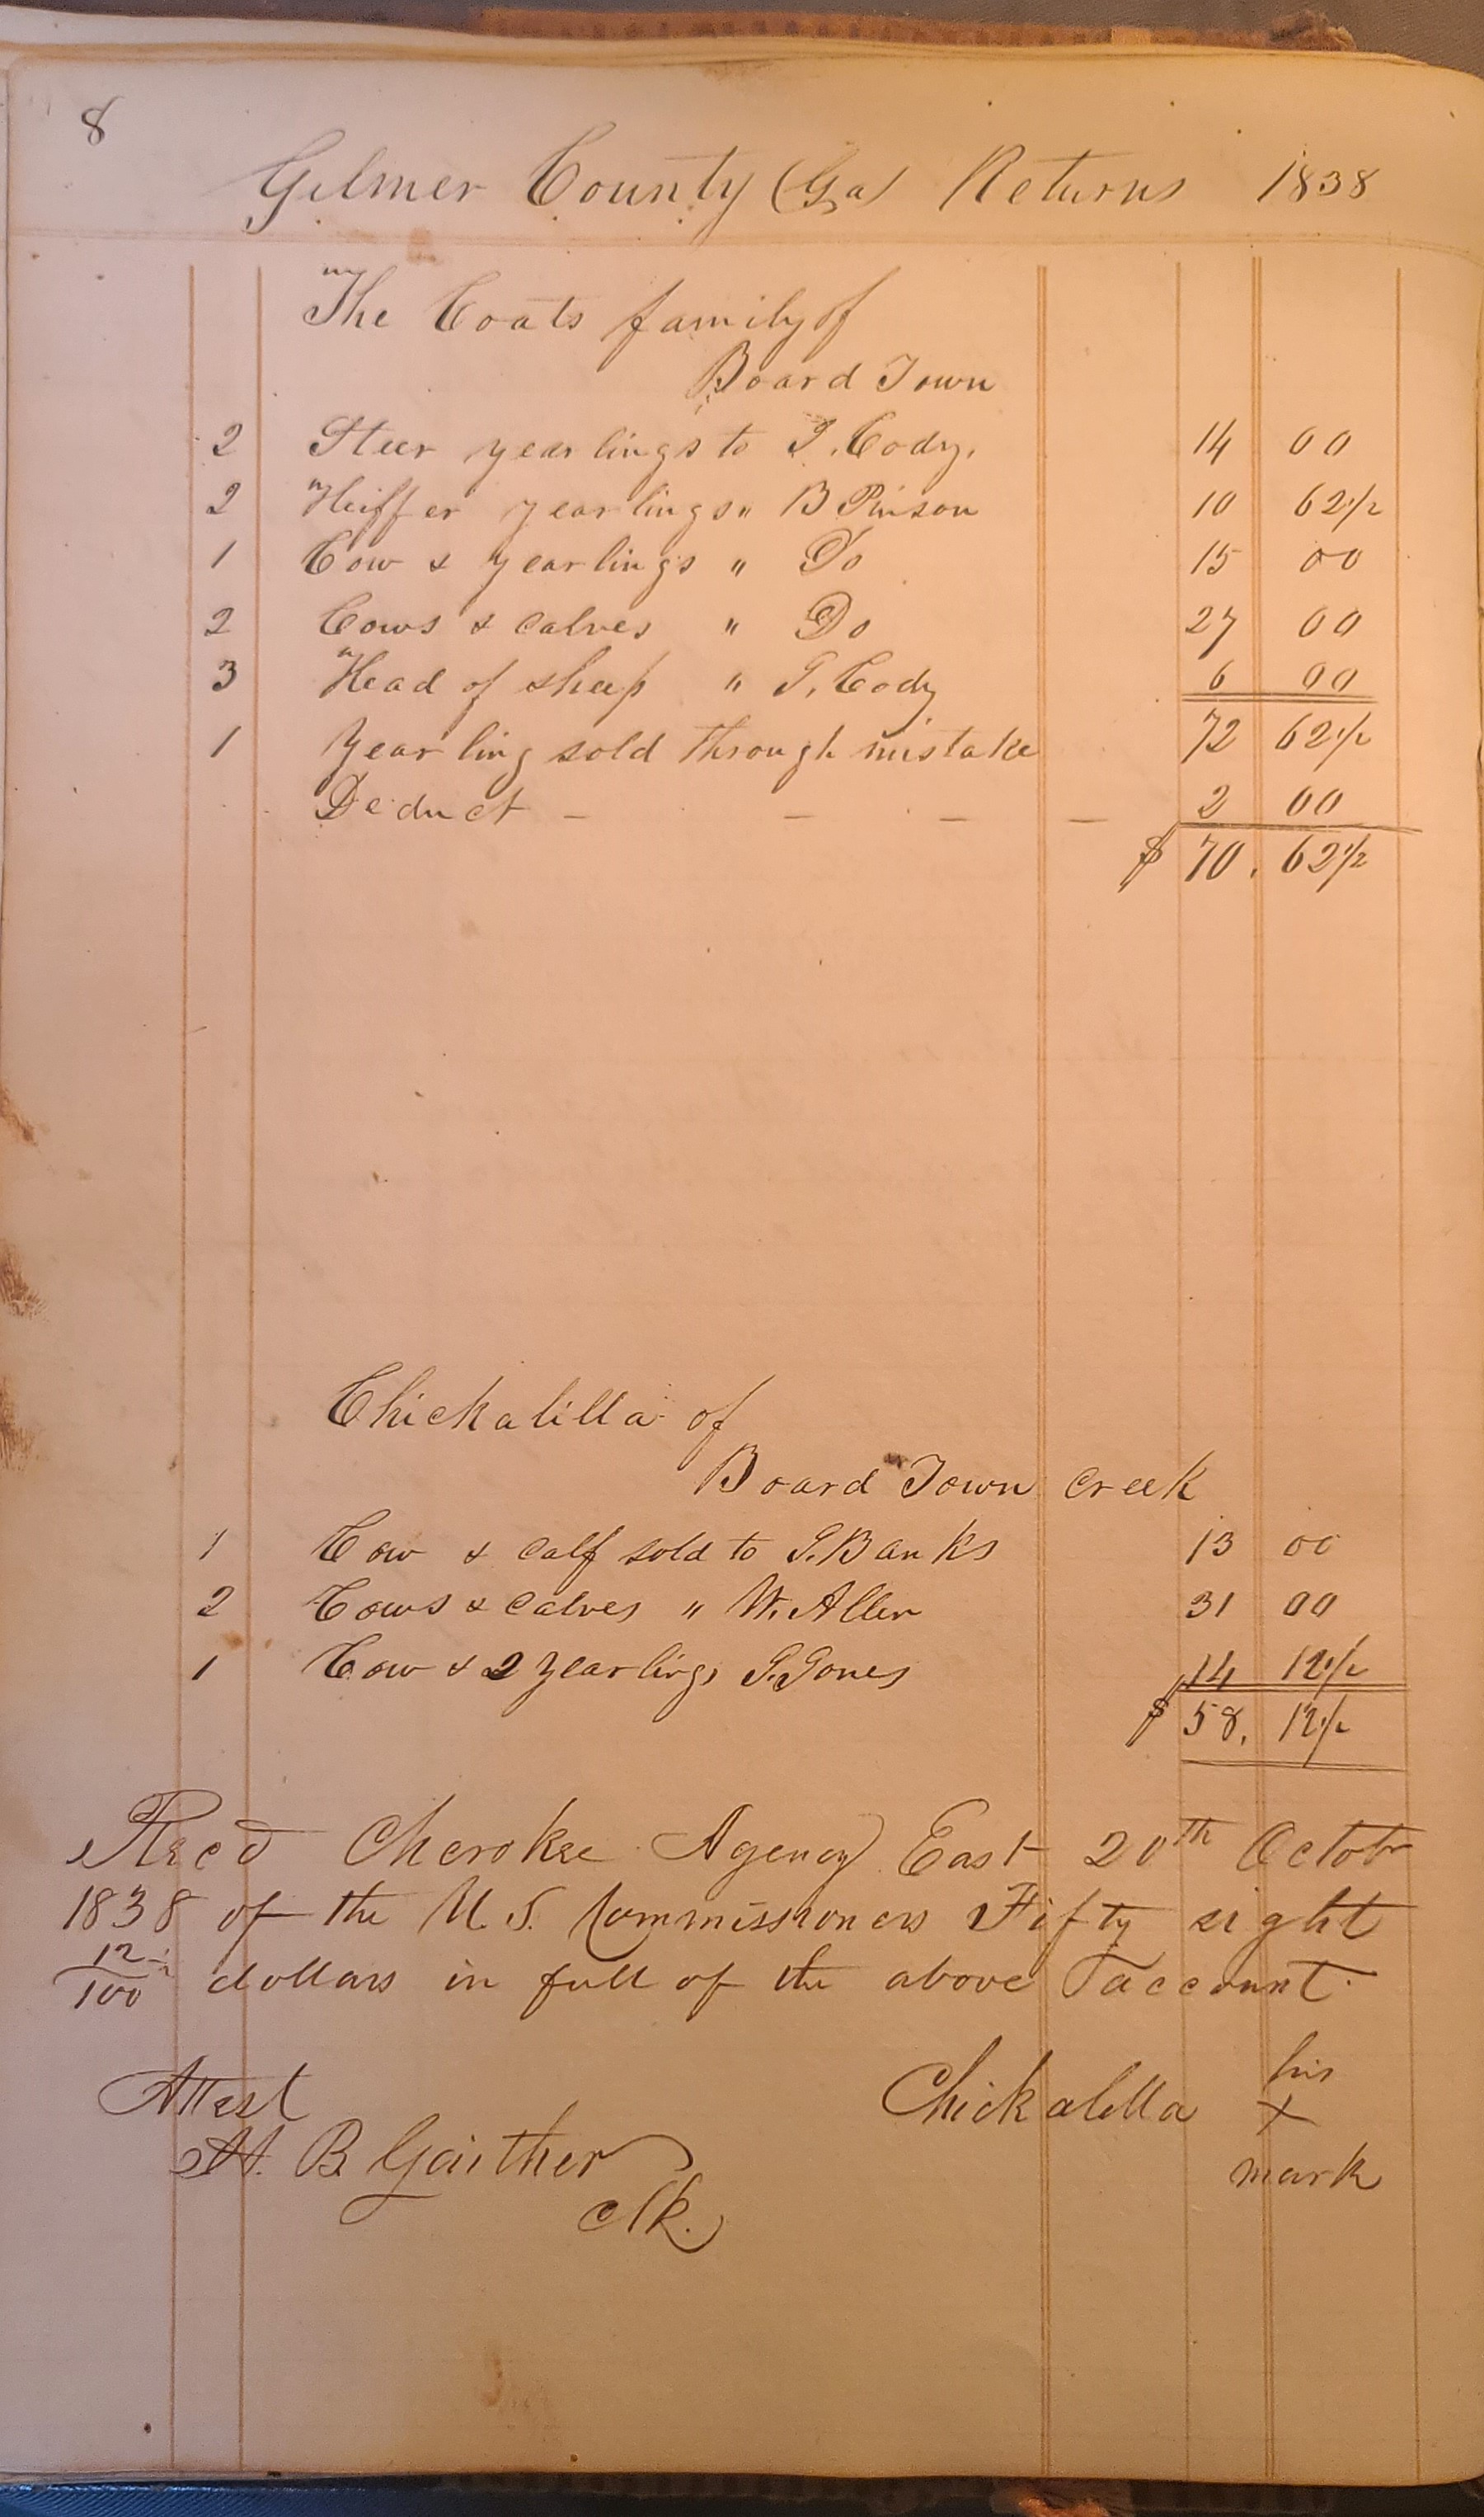 8
Gilmer County (Ga) Returns 1838
The Coats family of
Board Town
2 Steer yearlings to J. Cody. 14 00
2 Heiffer yearlings " B Pinson 10 62 1/2
1 Cow & yearlings " Do 15 00
2 Cows & calves " Do 27 00
3 Head of sheep " J. Cody 6 00
1 Yearling sold through mistake 72 62 1/2
Deduct - - - - 2 00
$ 70. 62 1/2
Chickalilla of
Board Town creek
1 Cow & calf sold to J. Banks 13 00
2 Cows & calves " W. Allen 31 00
1 Cow & 2 yearlings J. Jones 14 12 1/2
$ 58. 12 1/2
Recd Cherokee Agency East 20th Octobr
1838 of the U. S. Commissioners Fifty eight
12 1/2/100 dollars in full of the above account.
Attest Chickalilla his
x
A. B. Gaither mark
Clk.